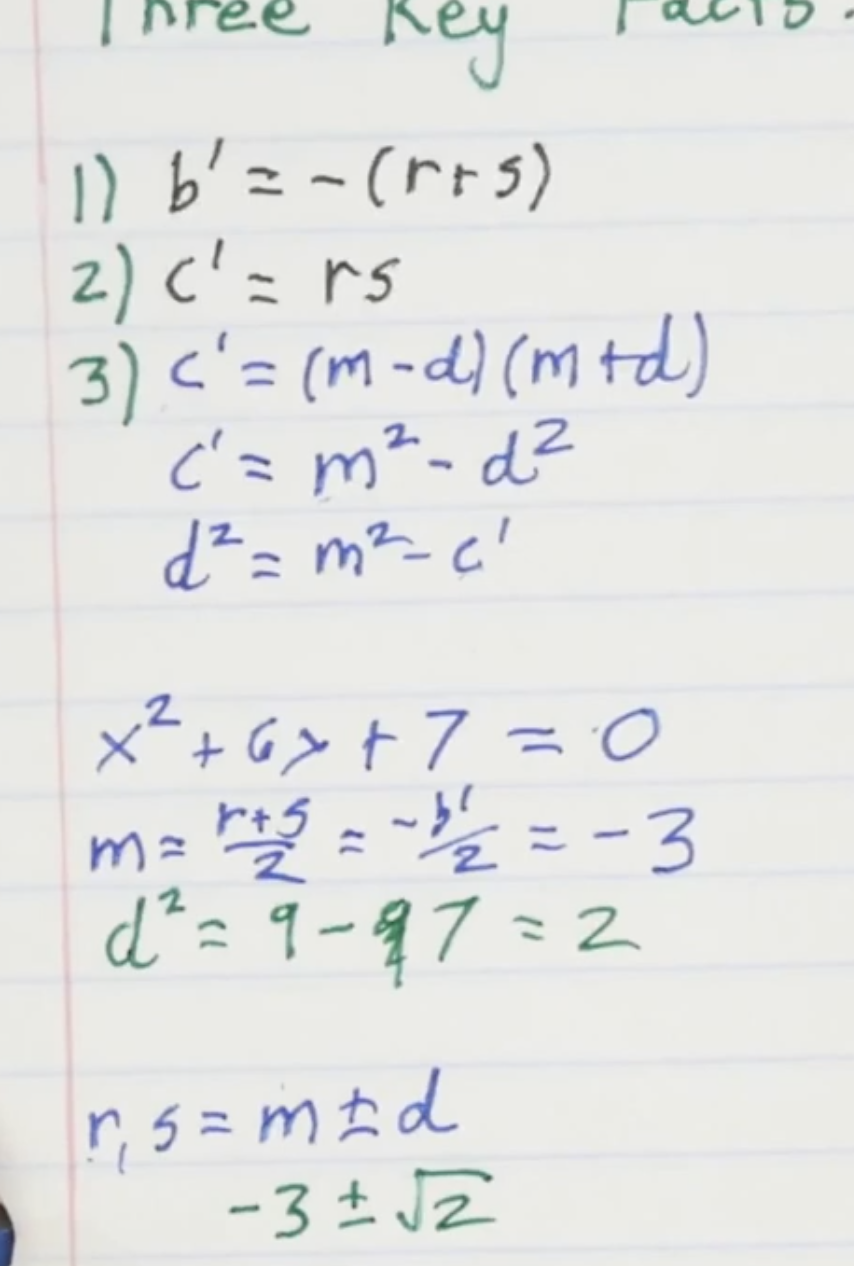 Three Key Facts.
1) b' = -(r+s)
2) c' = rs
3) c' = (m-d)(m+d)
c' = m² - d²
d² = m² - c'
x² + 6x + 7 = 0
m = r+s/2 = -b'/2 = -3
d² = 9 - 7 = 2
r, s = m ± d
-3 ± √2